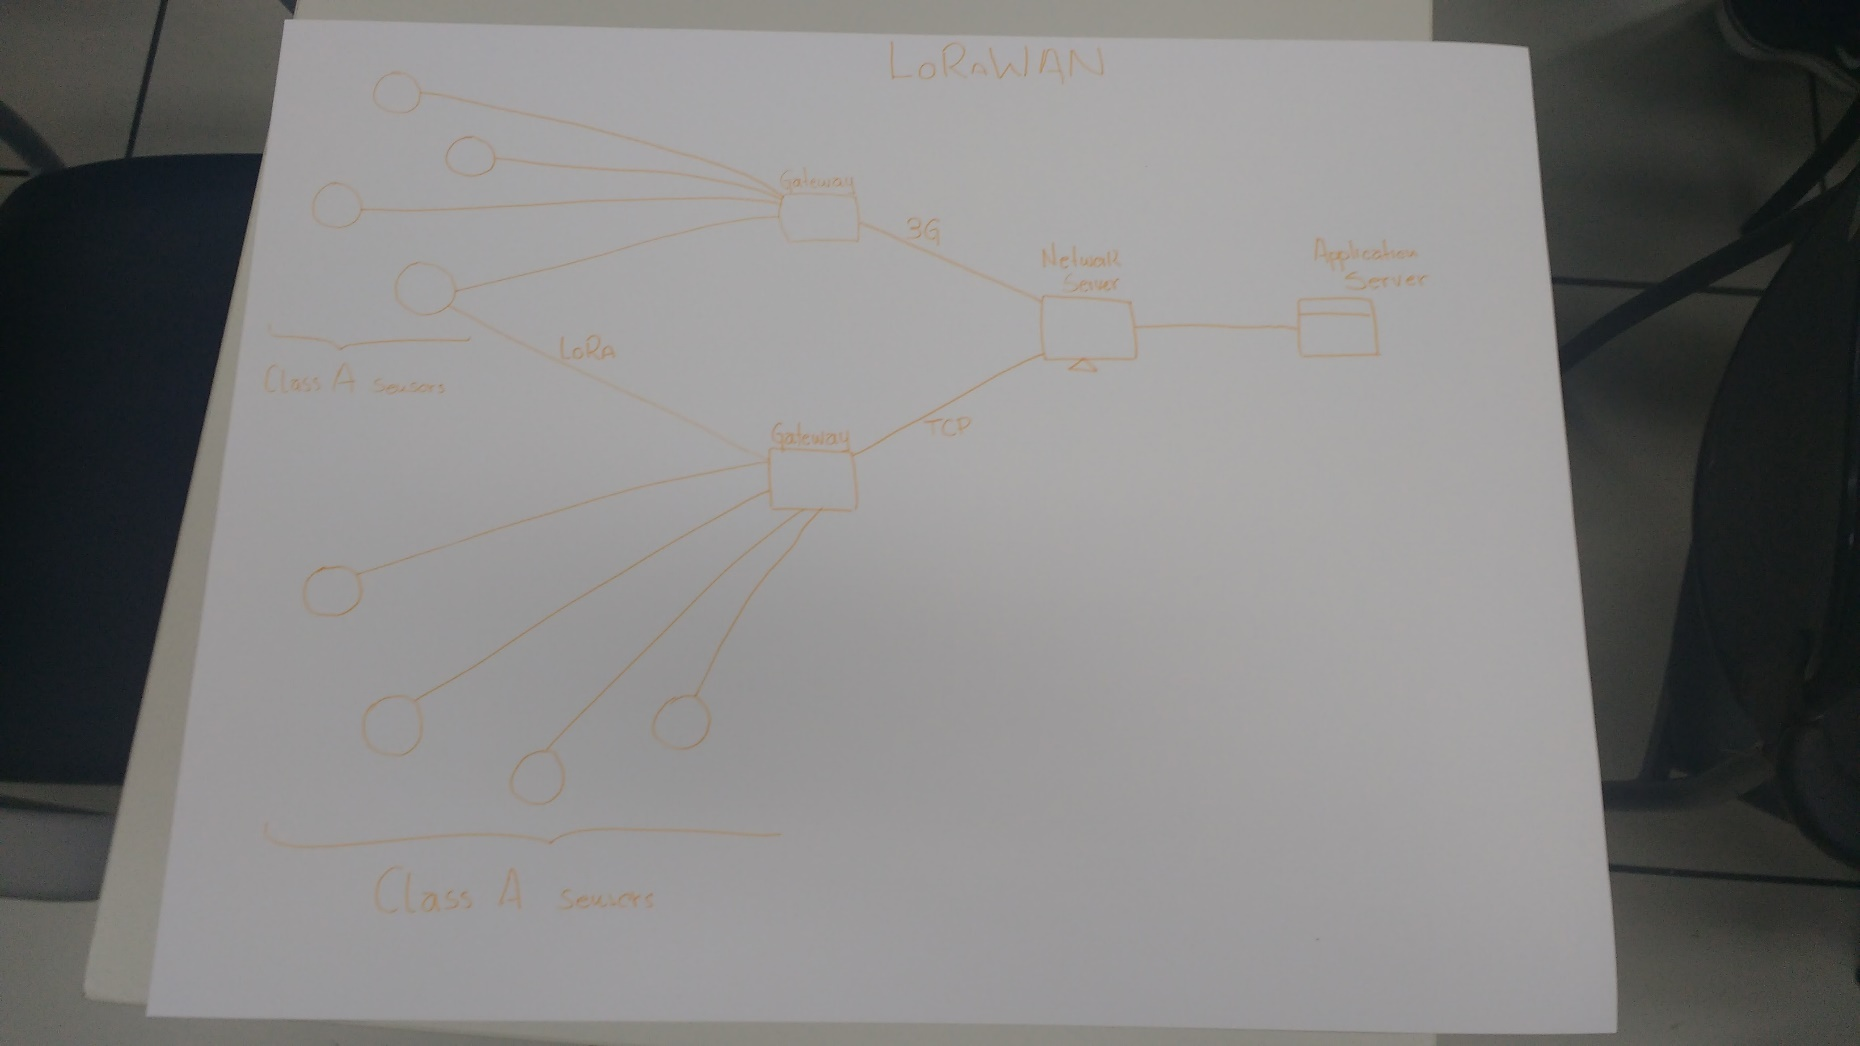 LoRaWAN
Gateway
3G
Network
Server
Application
Server
LoRa
Class A sensors
Gateway
TCP
Class A sensors